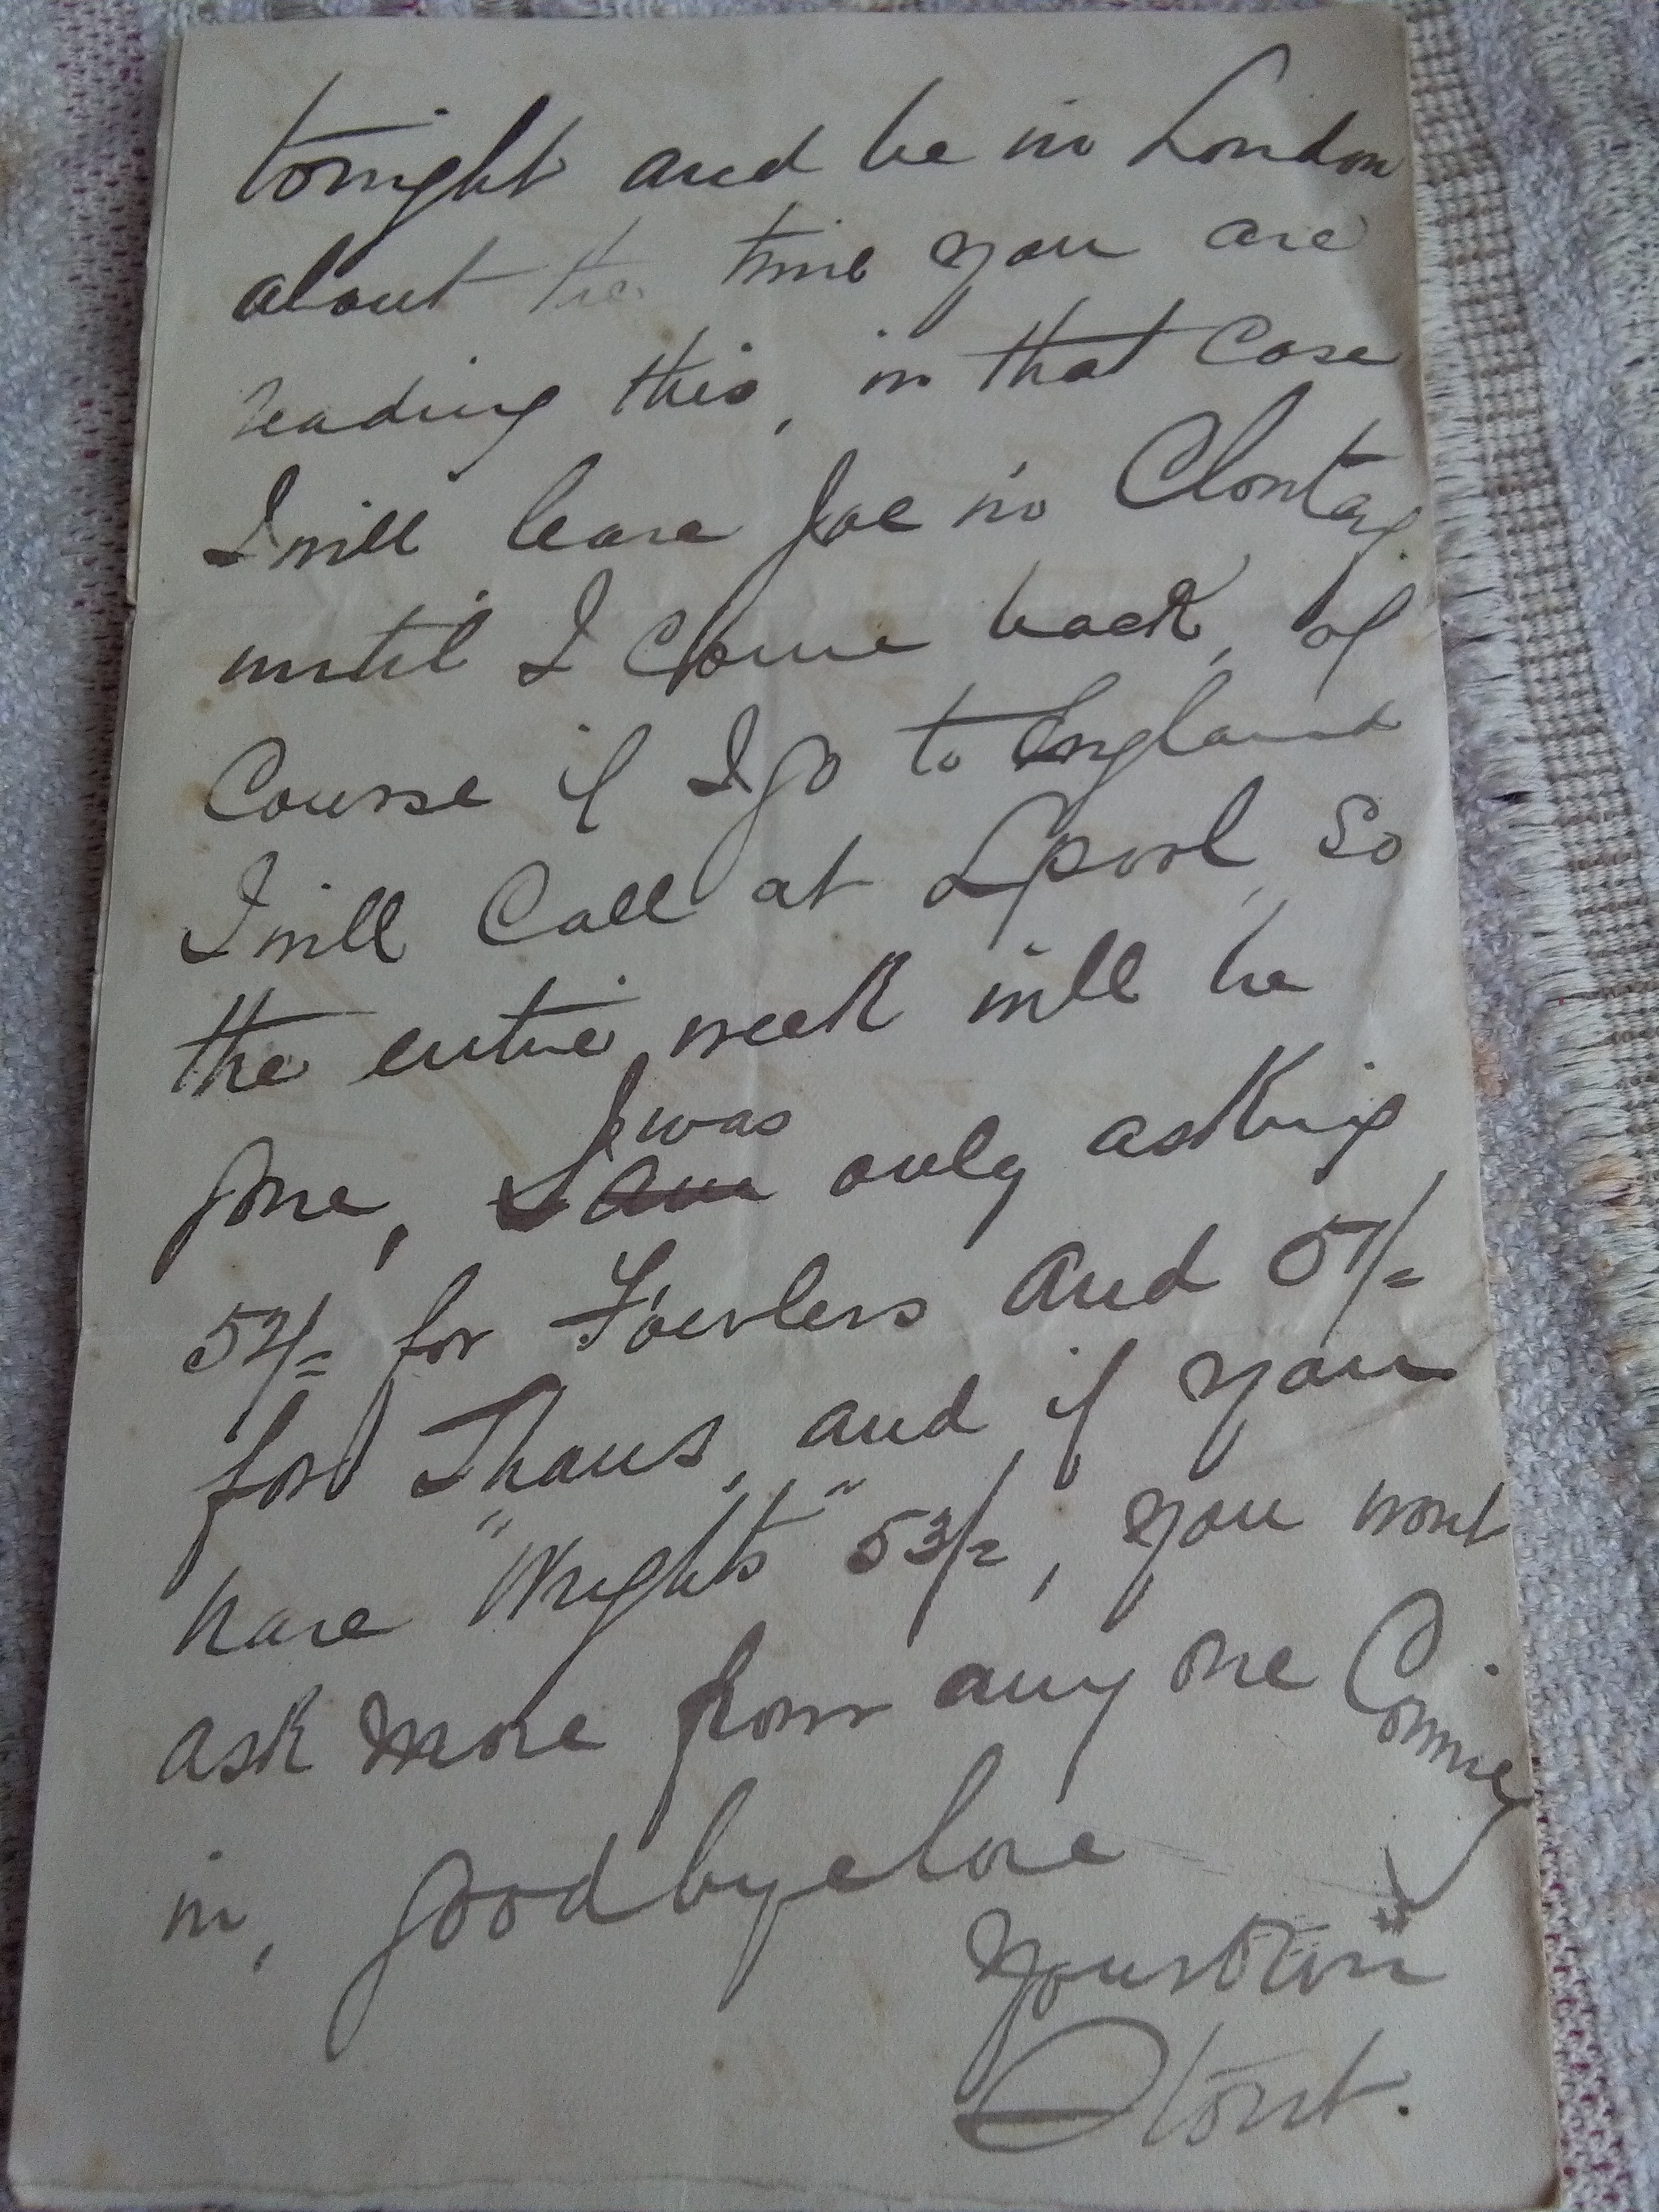 tonight and be in London
about the time you are
reading this, in that case
I will leave Joe in Clontarf
until I come back, of
Course if I go to England
I will Call at Lpool, So
the entire week will be
gone, I was I am only asking
52/= for Fowlers and 51/=
for Shaws, and if you
have "Wrights" 53/=, you wont
ask more from any one Coming
in, goodbye love
Your own
Stout.